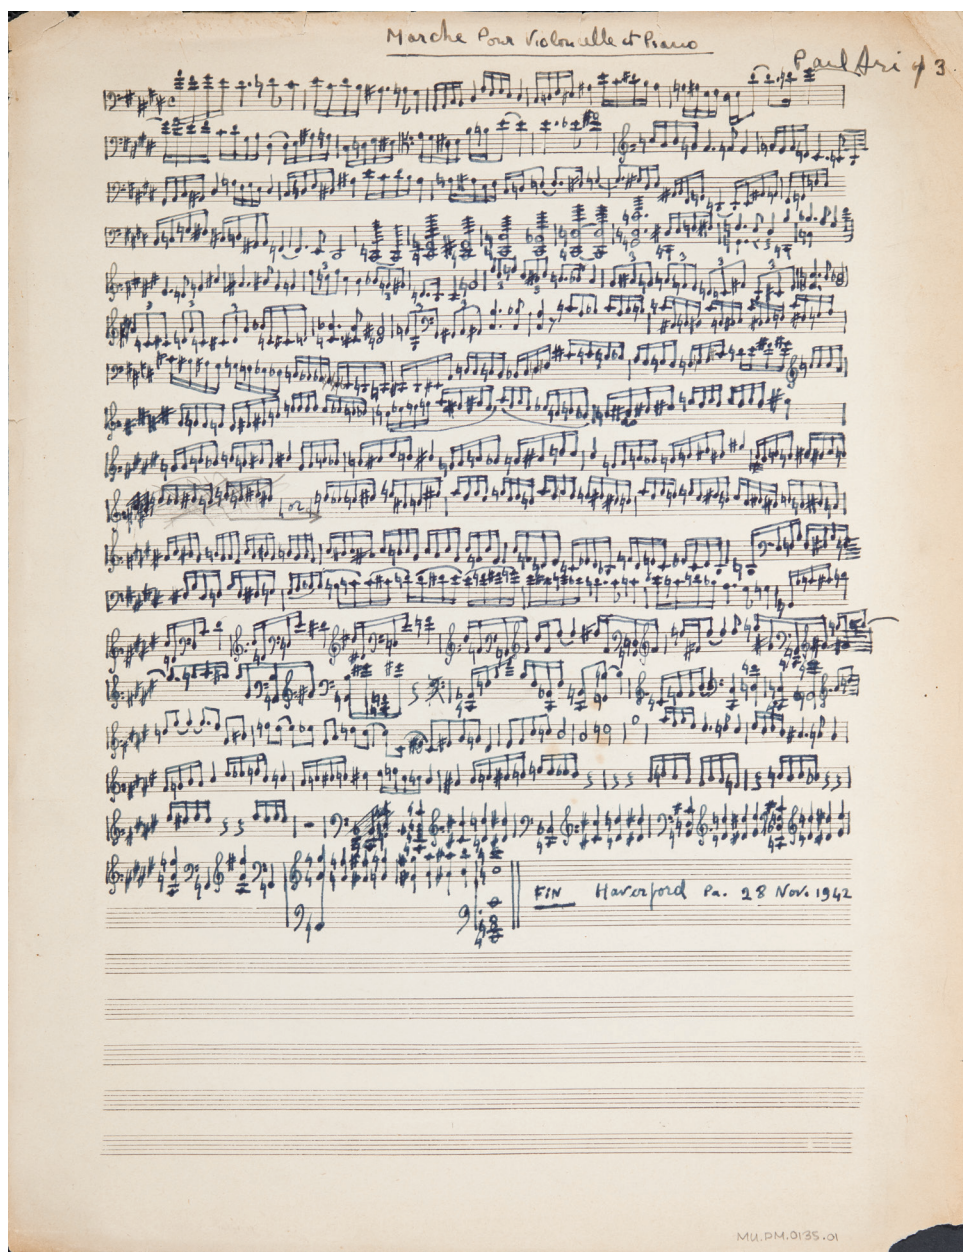 Marche Pour Violoncelle et Piano
Paul Ari op 3
FIN Haverford Pa. 28 Nov. 1942
MU.PM.0135.01